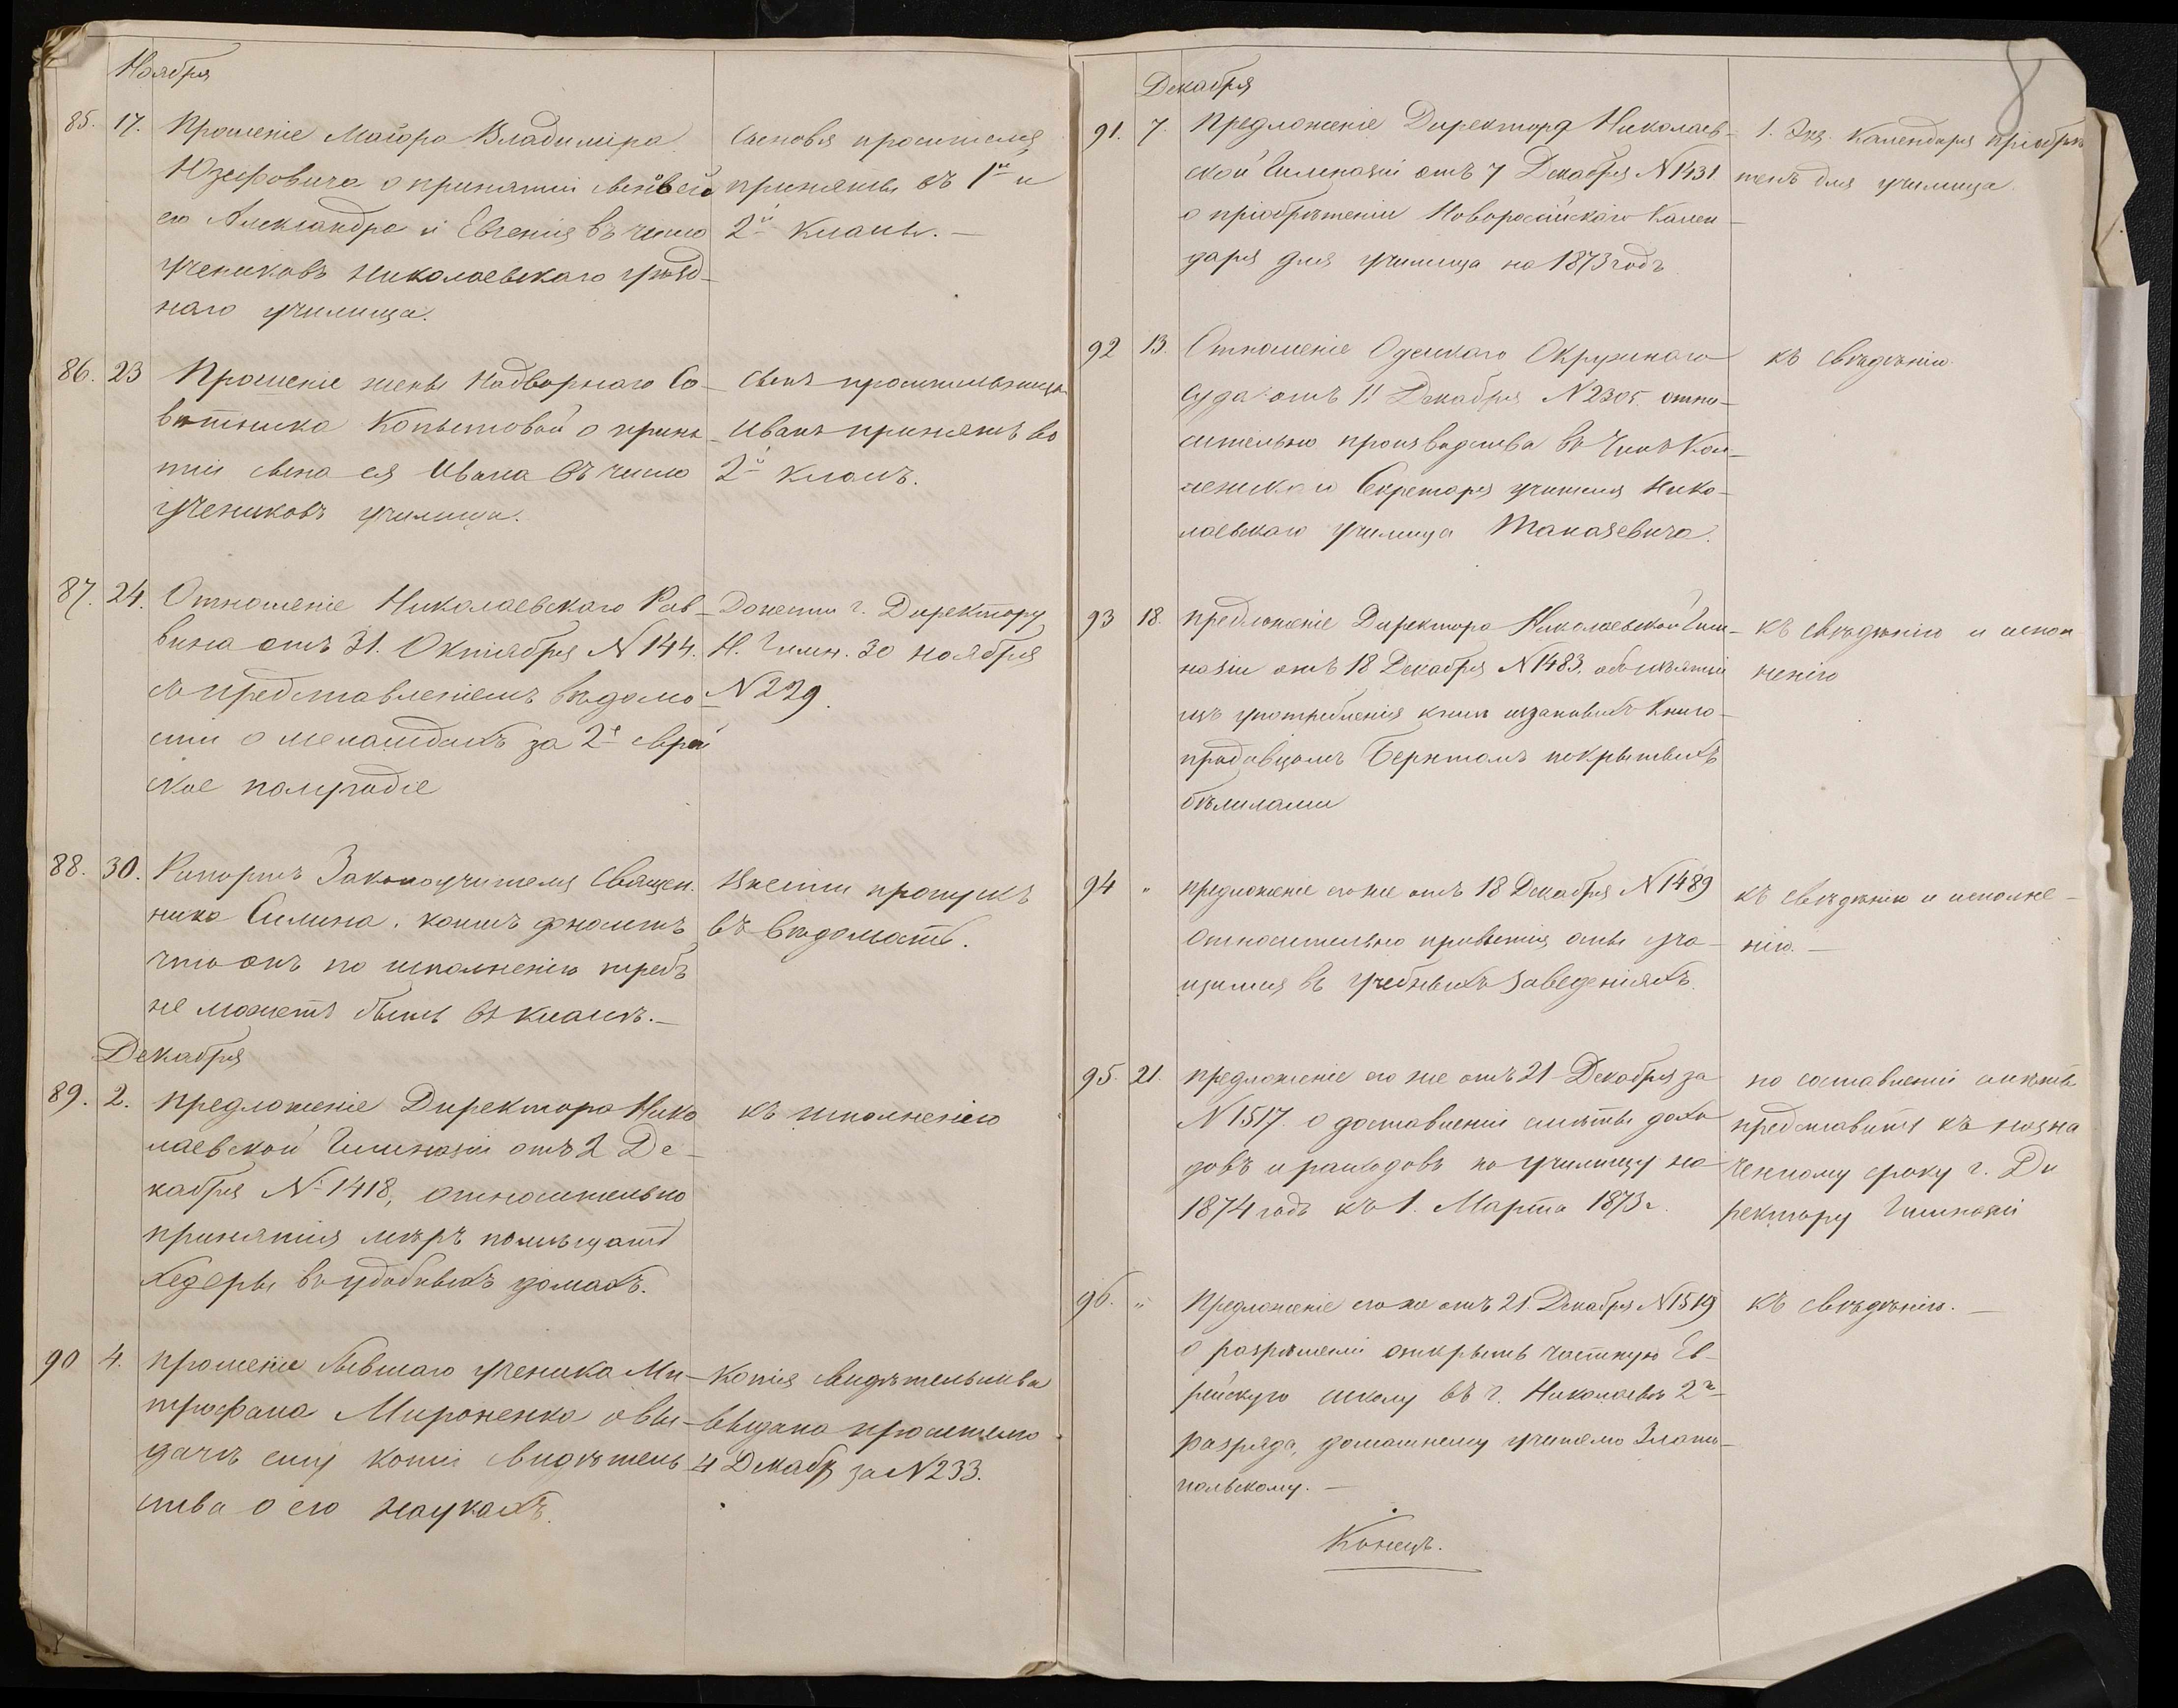 Ноября
85. 17. Прошеніе Маіора Владиміра
Юзефовича о принятіи сыновей
его Александра и Евгенія въ число
учениковъ Николаевскаго уѣзд-
наго училища.
Сыновья просителя
приняты въ 1й и
2й классъ. —
86. 23 Прошеніе жены Надворнаго Со-
вѣтника Копытовой о приня-
тіи сына ея Ивана въ число
учениковъ училища.
Сынъ просительницы
Иванъ принятъ во
2й классъ.
87. 24. Отношеніе Николаевскаго Рав-
вина отъ 31. Октября № 144.
съ представленіемъ вѣдомо-
сти о меламдахъ за 2е еврей
ское полугодіе
Донести г. Директору
Н. Гимн. 30 ноября
№ 229.
88. 30. Рапортъ Законоучителя Священ.
ника Силина, коимъ доноситъ
что онъ по исполненію требъ
не можетъ быть въ классѣ. —
Внести пропускъ
въ вѣдомость.
Декабря
89. 2. Предложеніе Директора Нико
лаевской Гимназіи отъ 2 Де-
кабря № 1418, относительно
принятія мѣръ помѣщать
хедеры въ удобныхъ домахъ.
къ исполненію
90 4. Прошеніе бывшаго ученика Ми-
трофана Мироненко о вы-
дачѣ ему копіи свидѣтель
ства о его наукахъ.
Копія свидѣтельства
выдана просителю
4 Декабр за № 233.
8
Декабря
91. 7. Предложеніе Директора Николаев-
ской Гимназіи отъ 7 Декабря № 1431
о пріобрѣтеніи Новоросійскаго Кален-
даря для училища на 1873 годъ
1. Экз. Календаря пріобрѣ
тенъ для училища.
92 13. Отношеніе Одескаго Окружнаго
Суда отъ 11 Декабря № 2305. отно-
сительно производства въ Чинъ Кол-
лежскаго Секретаря учителя Нико-
лаевскаго училища Маказевича.
къ свѣдѣнію
93 18. Предложеніе Директора Николаевской Гим-
назіи отъ 18 Декабря № 1483. объ изъятіи
изъ употребленія книгъ изданныхъ Книго-
продавцомъ покрытыхъ
бѣлилами
къ свѣдѣнію и испол
ненію
94 " Предложеніе его же отъ 18 Декабря № 1489
относительно привитія оспы уча-
щимся въ учебныхъ заведеніяхъ.
къ свѣдѣнію и исполне-
нію. —
95. 21. Предложеніе его же отъ 21 Декабря за
№ 1517. о доставленіи смѣты дохо
довъ и расходовъ по училищу на
1874 годъ къ 1. Марта 1873 г.
по составленіи смѣты
представить къ назна
ченному сроку г. Ди
ректору Гимназіи
96. " Предложеніе его же отъ 21. Декабря № 1519
о разрѣшеніи открыть частную Ев-
рейскую школу въ г. Николаевѣ 2го
разряда, домашнему учителю Злато-
польскому. —
къ свѣдѣнію. —
Конецъ.